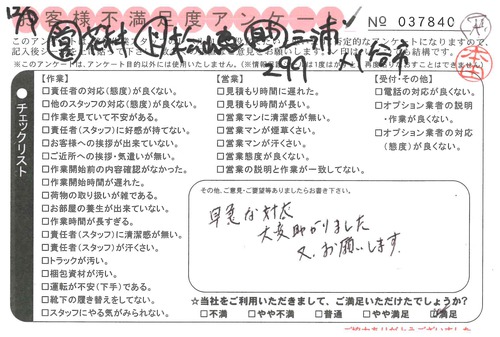 お客様不満足度アンケート
№ 037840
【作業】
□責任者の対応(態度)が良くない。
□他のスタッフの対応(態度)が良くない。
□作業を見ていて不安がある。
□責任者(スタッフ)に好感が持てない。
□お客様への挨拶が出来ていない。
□ご近所への挨拶・気遣いが無い。
□作業開始前の内容確認がなかった。
□作業開始時間が遅れた。
□荷物の取り扱いが雑である。
□お部屋の養生が出来ていない。
□作業時間が長すぎる。
□責任者(スタッフ)に清潔感が無い。
□責任者(スタッフ)が汗くさい。
□トラックが汚い。
□梱包資材が汚い。
□運転が不安(下手)である。
□靴下の履き替えをしてない。
□スタッフにやる気がみられない。
【営業】
□見積もり時間に遅れた。
□見積もり時間が長い。
□営業マンに清潔感が無い。
□営業マンが煙草くさい。
□営業マンが汗くさい。
□営業態度が良くない。
□営業の説明と作業が一致してない。
【受付・その他】
□電話の対応が良くない。
□オプション業者の説明
・作業が良くない。
□オプション業者の対応
(態度)が良くない。
チェックリスト
その他、ご意見・ご要望等ありましたらお書き下さい。
早急な対応
大変助かりました
又、お願いします
☆当社をご利用いただきまして、ご満足いただけたでしょうか?
□不満 □やや不満 □普通 □やや満足 □満足